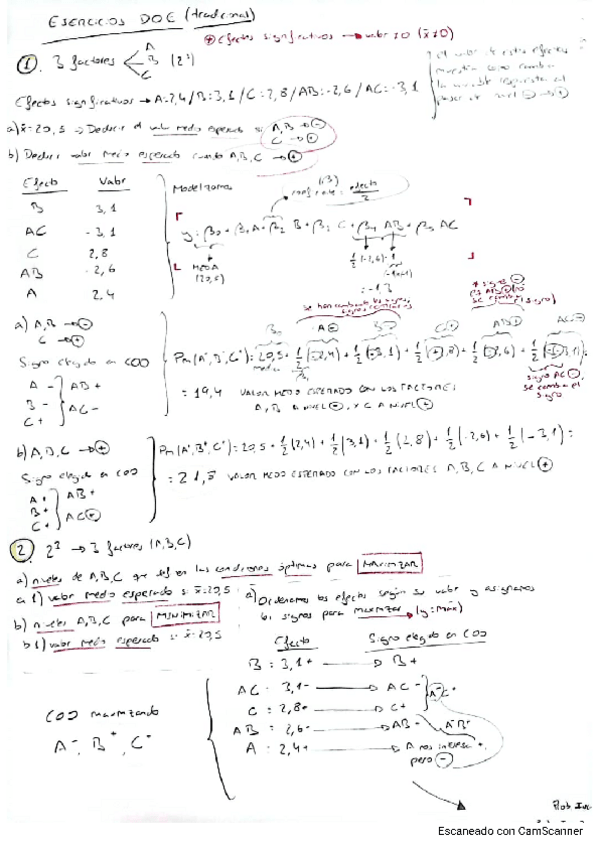 EJERCICIOS DOE (tradicional)
⊕ Efectos significativos → valor ≠ 0 (x̄ ≠ 0)
① 3 factores A B C (2³)
el valor de estos efectos
muestra como cambia
la variable respuesta al
pasar de nivel ⊖ → ⊕
Efectos significativos → A=2,4 / B=3,1 / C=2,8 / AB=-2,6 / AC=-3,1
a) x̄=20,5 → Decir el valor medio esperado si A,B → ⊖
C → ⊕
b) Decir valor medio esperado cuando A,B,C → ⊕
Efecto Valor
B 3,1
AC -3,1
C 2,8
AB -2,6
A 2,4
Modelizamos
(β) coeficiente = efecto/2
y = β0 + β1 A + β2 B + β3 C + β4 AB + β5 AC
MEDIA
(20,5)
1/2 (-2,6)·1
= -1,3
a) A,B → ⊖
C → ⊕
Signo elegido en COO
A - } AB +
B - } AC -
C +
se han cambiado los signos
B0 A⊖ B⊖ C⊕ AB⊕ AC⊖
Pm(A⁻,B⁻,C⁺) = 20,5 + 1/2(-2,4) + 1/2(-3,1) + 1/2(2,8) + 1/2(-2,6) + 1/2(-(-3,1)) =
media
signo AC ⊖
se cambia el
signo
= 19,4 VALOR MEDIO ESPERADO CON LOS FACTORES
A, B A NIVEL ⊖, Y C A NIVEL ⊕
b) A,B,C → ⊕
Signo elegido en COO
A+ } AB +
B+
C+ } AC ⊕
Pm(A⁺,B⁺,C⁺) = 20,5 + 1/2(2,4) + 1/2(3,1) + 1/2(2,8) + 1/2(-2,6) + 1/2(-3,1) =
= 21,8 VALOR MEDIO ESPERADO CON LOS FACTORES A, B, C A NIVEL ⊕
② 2³ → 3 factores (A,B,C)
a) niveles de A,B,C que son las condiciones óptimas para MAXIMIZAR
a1) valor medio esperado si x̄=20,5
b) niveles A,B,C para MINIMIZAR
b1) valor medio esperado si x̄=20,5
a) Ordenamos los efectos según su valor y asignamos
los signos para maximizar → (y=máx)
Efecto Signo elegido en COO
B : 3,1+ → B+
AC : 3,1- → AC- } A⁻C⁺
C : 2,8+ → C+
AB : 2,6- → AB- A⁻B⁺
A : 2,4+ → A nos interesa +,
pero ⊖
COO maximizando
A⁻, B⁺, C⁺
Escaneado con CamScanner